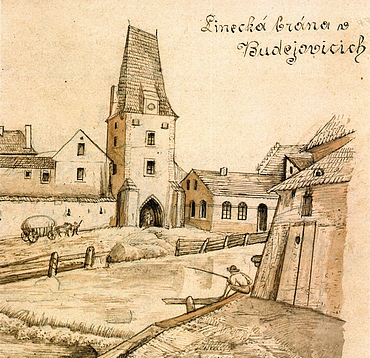 Linecká brána v
Budejovicich